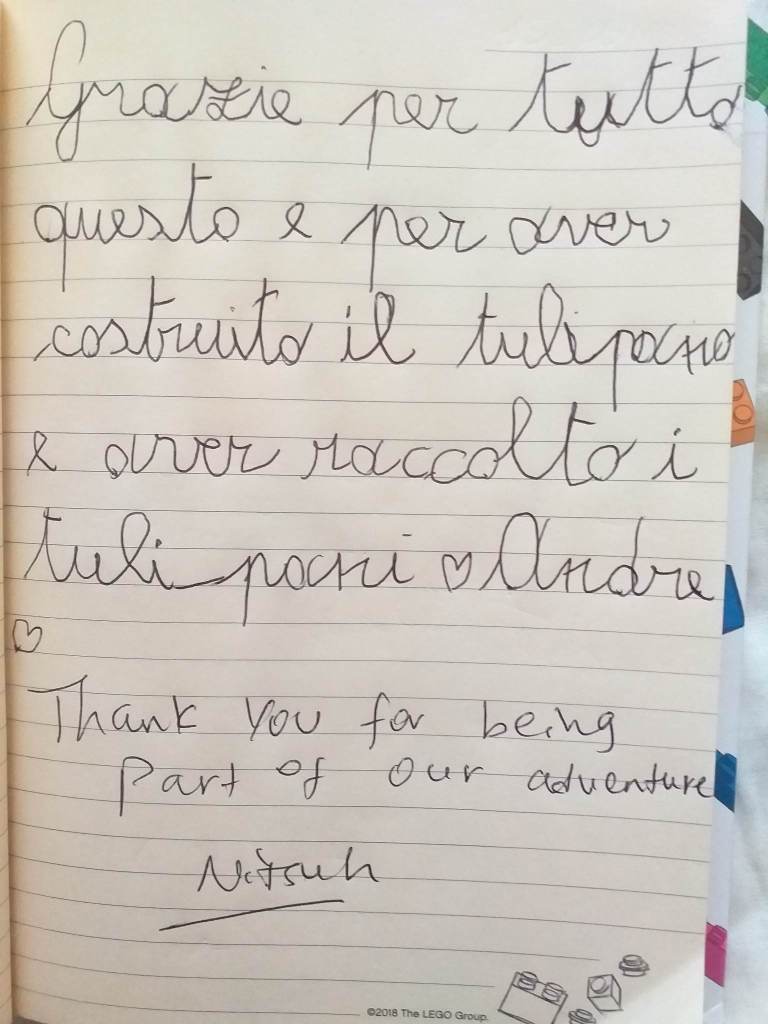 Grazie per tutto
questo e per aver
costruito il tulipano
e aver raccolto i
tulipani ♡ Andre
♡
Thank you for being
Part of our adventure
Nitsuh
©2018 The LEGO Group.